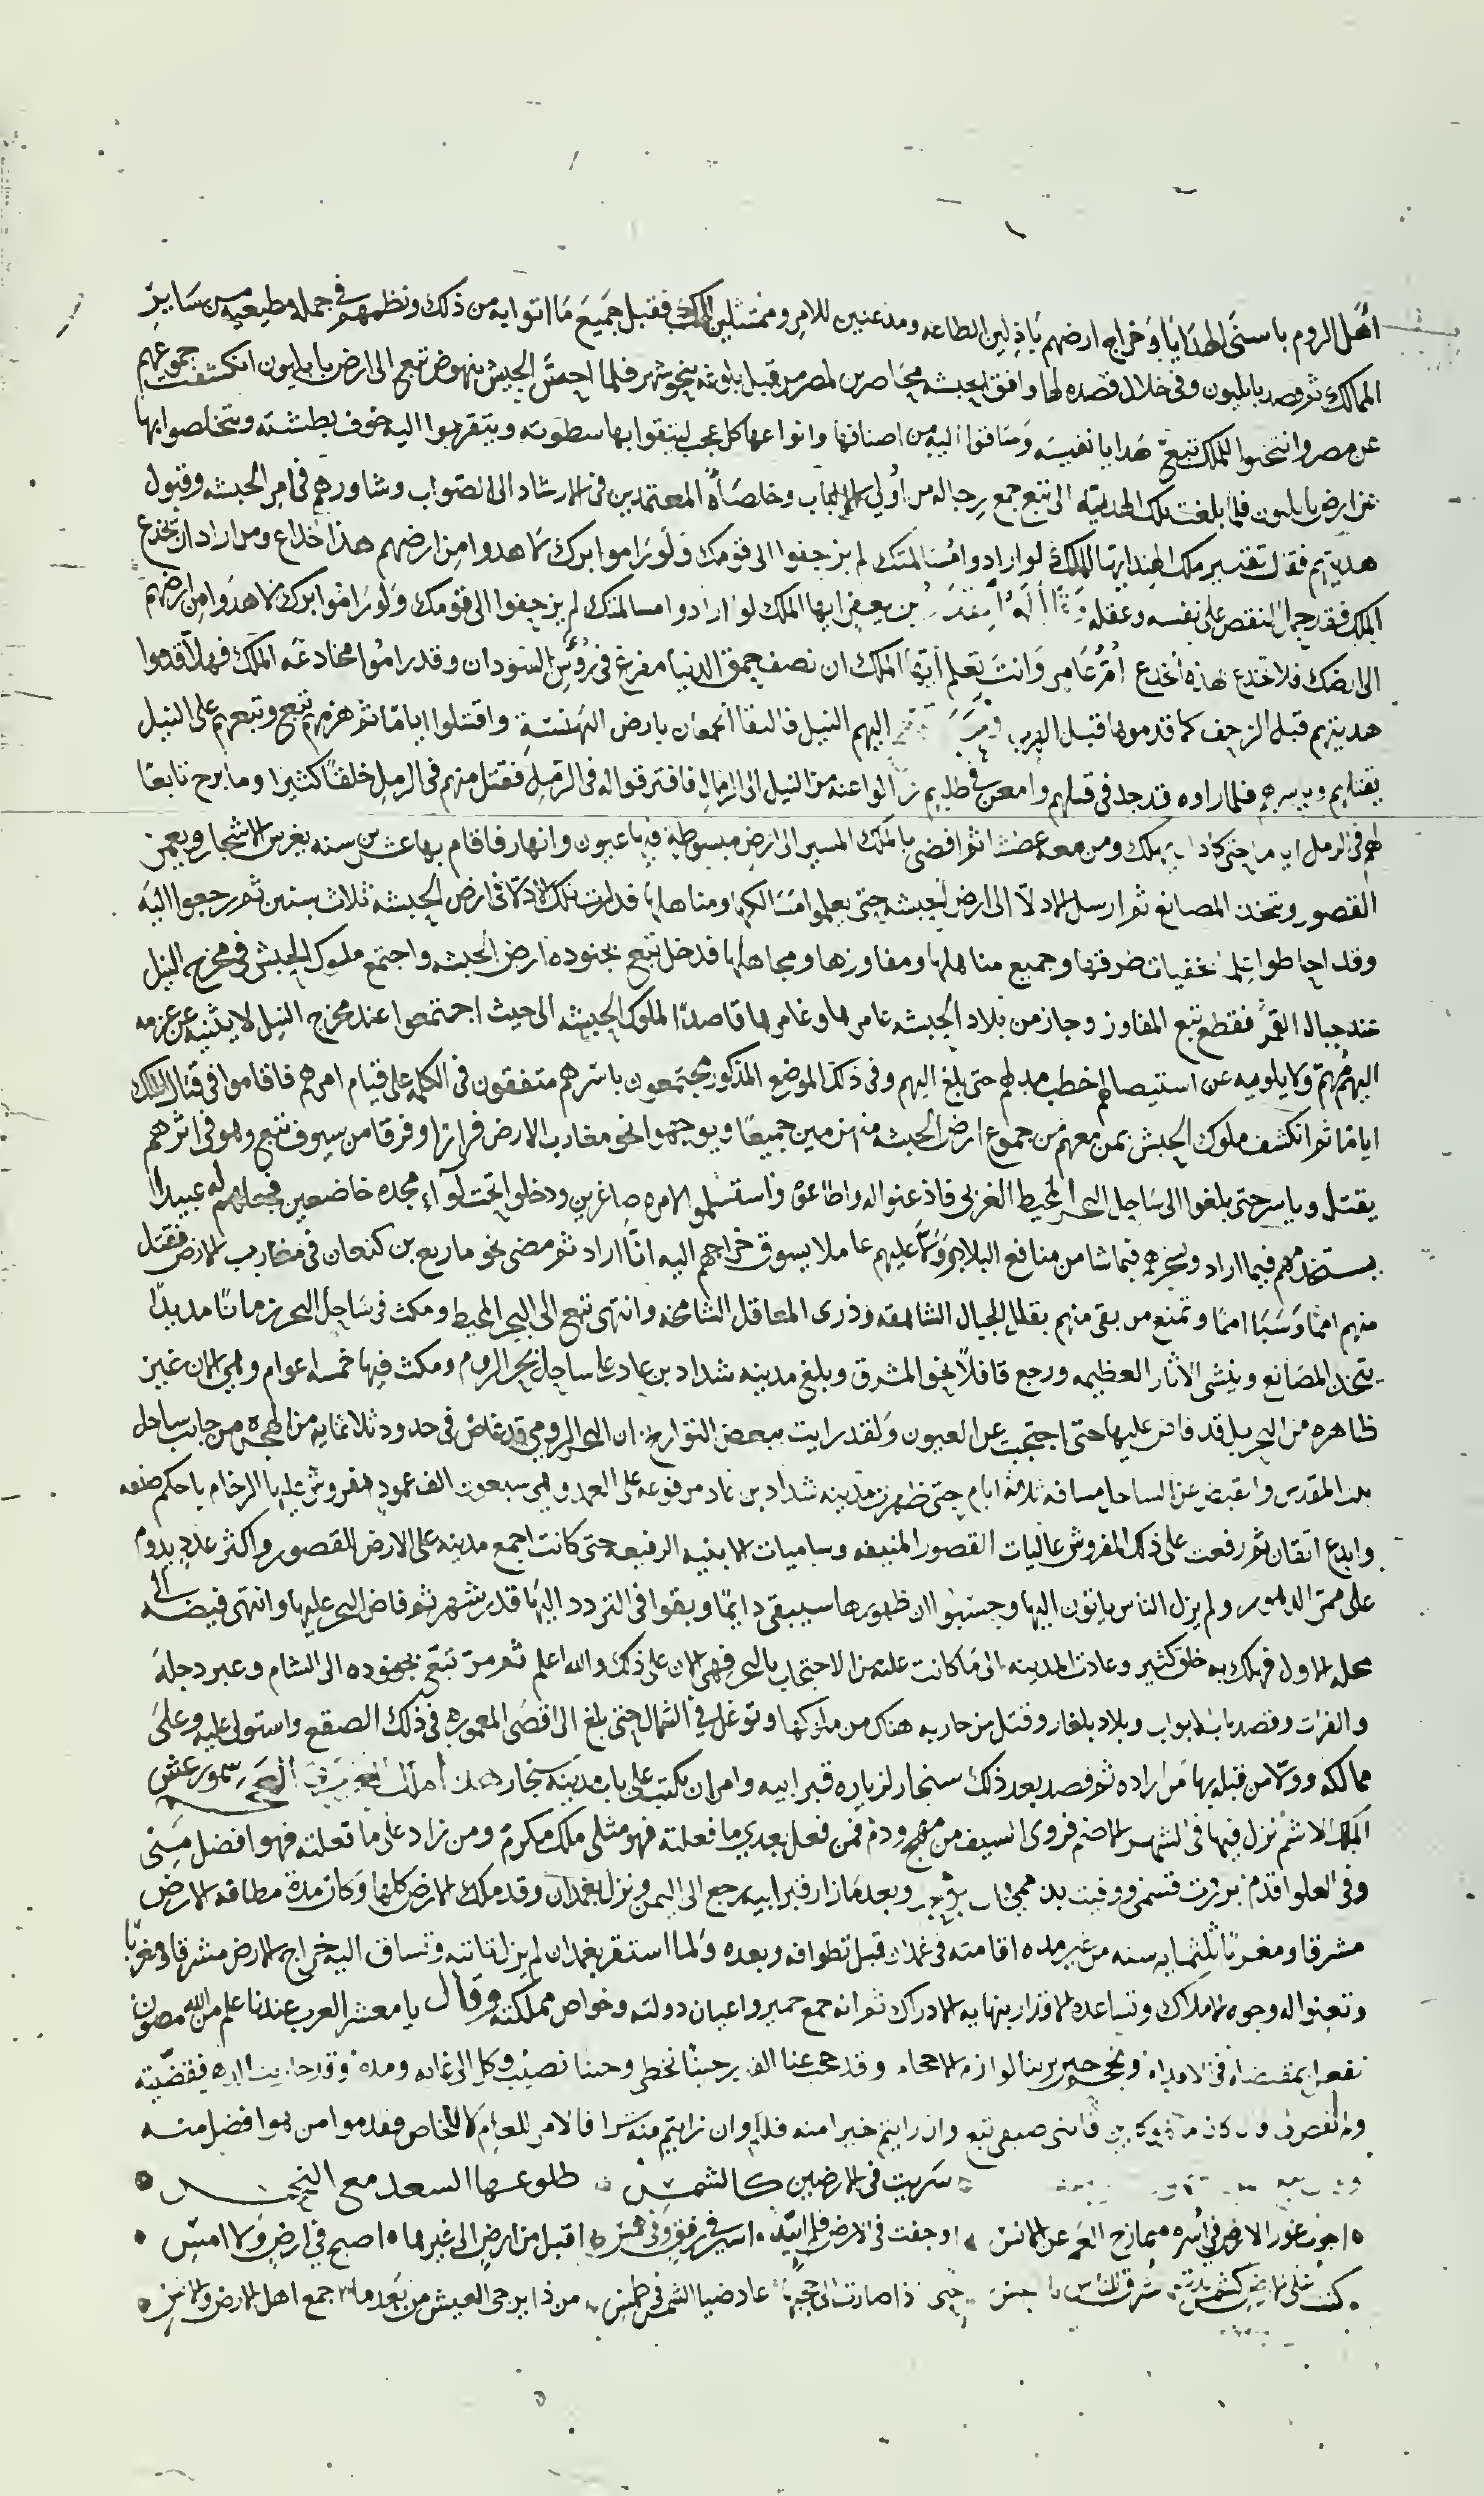 اهل الروم باسنى الهدايا وخراج ارضهم باذلين الطاعه ومذعنين للامر وممتثلين للملك فقبل جميع ما اتوا به من ذلك ونظمهم في جمله مطيعيه من ساير
الممالك ثم قصد بابليون وفي خلال قصده لها وافق الحبشه محاصرين لمصر من قبل بلوغه بنحو شهر فلما احس الجيش بنهوض تبع الى ارض بابليون انكشفت جموعهم
عن مصر وانتخبوا للملك تبع هدايا نفيسه وساقوا اليه من اصنافها وانواعها كل عجب ليتقوا بها سطوته ويتقربوا اليه خوف بطشته ويتخلصوا بها
عن ارض بابليون فلما بلغت تلك الهديه الى تبع جمع رجاله من اولي الالباب وخاصاه المعتمدين في الارشاد الى الصواب وشاورهم في امر الحبشه وقبول
هديتهم فقال تفسير ملك الهند ايها الملك لو ارادوا مسالمتك لم يزحفوا الى قومك ولو راموا برك لاهدوا من ارضهم هذا خداع ومن اراد ان يخدع
الملك فقد حمل النقص على نفسه وعقله بن يعفر ايها الملك لو ارادوا مسالمتك لم يزحفوا الى قومك ولو راموا برك لاهدوا من ارضهم
الى ارضك فلا تخدع لهذه الخدع عامر وانت تعلم ايها الملك ان نصف حمق الدنيا مفرغ في رؤس السودان وقد راموا مخادعه الملك فهلا قدموا
هديتهم قبل الزحف كما قدموها قبل الهرب اليهم النيل فالتقا الجمعان بارض البهنسة واقتتلوا اياما ثم هزمهم تبع وتبعهم على النيل
يقتلهم وياسرهم فلما راوه قد جد في قتلهم وامعن في طلبهم زالوا عنه من النيل الى الرمال فافترقوا له في الرمل فقتل منهم في الرمل خلقا كثيرا وما برح تابعا
لهم في الرمل حتى كاد ان يهلك ومن معه عطشا ثم افضى بالملك المسير الى ارض مبسوطة فيها عيون وانهار فاقام بها عشرين سنه يغرس الاشجار ويعمر
القصور ويتخذ المصانع ثم ارسل الادلا الى ارض الحبشه حتى يعلموا مسالكها ومناهلها فدارت تلك الادلا في ارض الحبشه ثلاث سنين ثم رجعوا اليه
وقد احاطوا علما بخفيات طرقها وجميع مناهلها ومفاوزها ومجاهلها فدخل تبع بجنوده ارض الحبشه واجتمع ملوك الحبش في مخرج النيل
عند جبال القمر فقطع تبع المفاوز وجاز من بلاد الحبشه عامرها وغامرها قاصدا لملوك الحبشه الى حيث اجتمعوا عند مخرج النيل لا يثنيه عن عزمه
اليهم مهم ولا يلويه عن استيصالهم خطب مدلهم حتى بلغ اليهم وفي ذلك الموضع المذكور مجتمعون باسرهم متفقون في الكلمه على قيام امرهم فاقاموا في قتال الملك
اياما ثم انكشف ملوك الحبش بمن معهم من جموع ارض الحبشه منهزمين جميعا وتوجهوا نحو مغارب الارض فرارا وفرقا من سيوف تبع وهو في اثرهم
يقتل وياسر حتى بلغوا الى ساحل البحر المحيط الغربي فاذعنوا له واطاعوه واستسلموا لامره صاغرين ودخلوا تحت لواء مجده خاضعين فجعلهم له عبيدا
يستخدمهم فيما اراد ويسخرهم فيما شا من منافع البلاد وولا عليهم عاملا يسوق خراجهم اليه انا اراد ثم مضى نحو ماريع بن كنعان في مغارب الارض فقتل
منهم امما وسبا امما وتمنع من بقى منهم بقلال الجبال الشاهقه وذرى المعاقل الشامخه وانتهى تبع الى البحر المحيط ومكث في ساحل البحر زمانا مديدا
يتخذ المصانع وينشى الاثار العظيمه ورجع قافلا نحو المشرق وبلغ مدينه شداد بن عاد على ساحل بحر الروم ومكث فيها خمسه اعوام وهي الان غير
ظاهره من البحر بل قد فاض عليها حتى احتجبت عن العيون ولقد رايت ببعض التواريخ ان البحر الرومي قد غاض في حدود ثلاثمايه من الهجره من جانب ساحل
بيت المقدس وانقبض عن الساحل مسافه ثلاثه ايام حتى ظهرت مدينه شداد بن عاد مرفوعه على العمد وهي سبعون الف عمود مفروش عليها الرخام باحكم صنعه
وابدع اتقان ثم رفعت على ذلك المفروش عاليات القصور المنيفه وساميات الابنيه الرفيعه حتى كانت اجمع مدينه على الارض للقصور واكثر عدد يدوم
على ممر الدهور ولم يزل الناس ياتون اليها وحسبوا ان ظهورها سيبقى دايما وبقوا في التردد اليها قدر شهر ثم فاض البحر عليها وانتهى فيضه الى
محله الاول فهلك به خلق كثير وعادت المدينه الى ما كانت عليه من الاحتجاب بالبحر فهي الان على ذلك والله اعلم ثم مر تبع بجنوده الى الشام وعبر دجلة
والفرات وقصد باب الابواب وبلاد بلغار وقتل من حاربه هناك من ملوكها وتوغل في الشمال حتى بلغ الى اقصى المعموره في ذلك الصقع واستولى عليه وعلى
ممالكه وولا من قبله بها من اراده ثم قصد بعد ذلك سنجار لزياره قبر ابيه وامر ان يكتب على باب مدينه سنجار هذا شمر يرعش
الملك الاشم نزل فيها في الشهر الاصم فروى السيف من مهج ودم فمن فعل بعدي ما فعلته فهو مثلي ملك مكرم ومن زاد على ما فعلته فهو افضل مني
وفي العلو اقدم وبعد ما زار قبر ابيه رجع الى اليمن ونزل بغمدان وقد ملك الارض كلها وكان مدة مطافه الارض
مشرقا ومغربا ثلثمايه سنه من غير مده اقامته في غمدان قبل تطوافه وبعده ولما استقر بغمدان لم يزل تاتيه وتساق اليه خراج الارض مشرقا ومغربا
وتعنوا له وجوه الاملاك وتساعده الاقدار بنهايه الادراك ثم انه جمع حمير واعيان دولته وخواص مملكته وقال يا معشر العرب عندنا علم من الله مصون
نفعل بمقتضاه في الامور وقد حجب عنا الغيب فحينا نخطي وحينا نصيب وكل الى غايه ومدة
فابنى صيفي تبع وان رايتم خيرا منه فلا وان رايتم منه شرا فالامر للعام لا للخاص فقدموا من هوا افضل منه
سريت في الارضين كالشمس طلوعها السعد مع النحس
اجوب غور الارض في اسره ممازج العم عن الانس اوجفت في الارض فلم اتئد اسير في رفق وفي همس اقبل من ارض الى غيرها اصبح في ارض ولا امسي
كنت على الارض كشمس بدت شرق حتى اذا صارت الى حجبها عاد ضيا الشمس في طمس من ذا يرجى العيش من بعدما جمع اهل الارض والانس